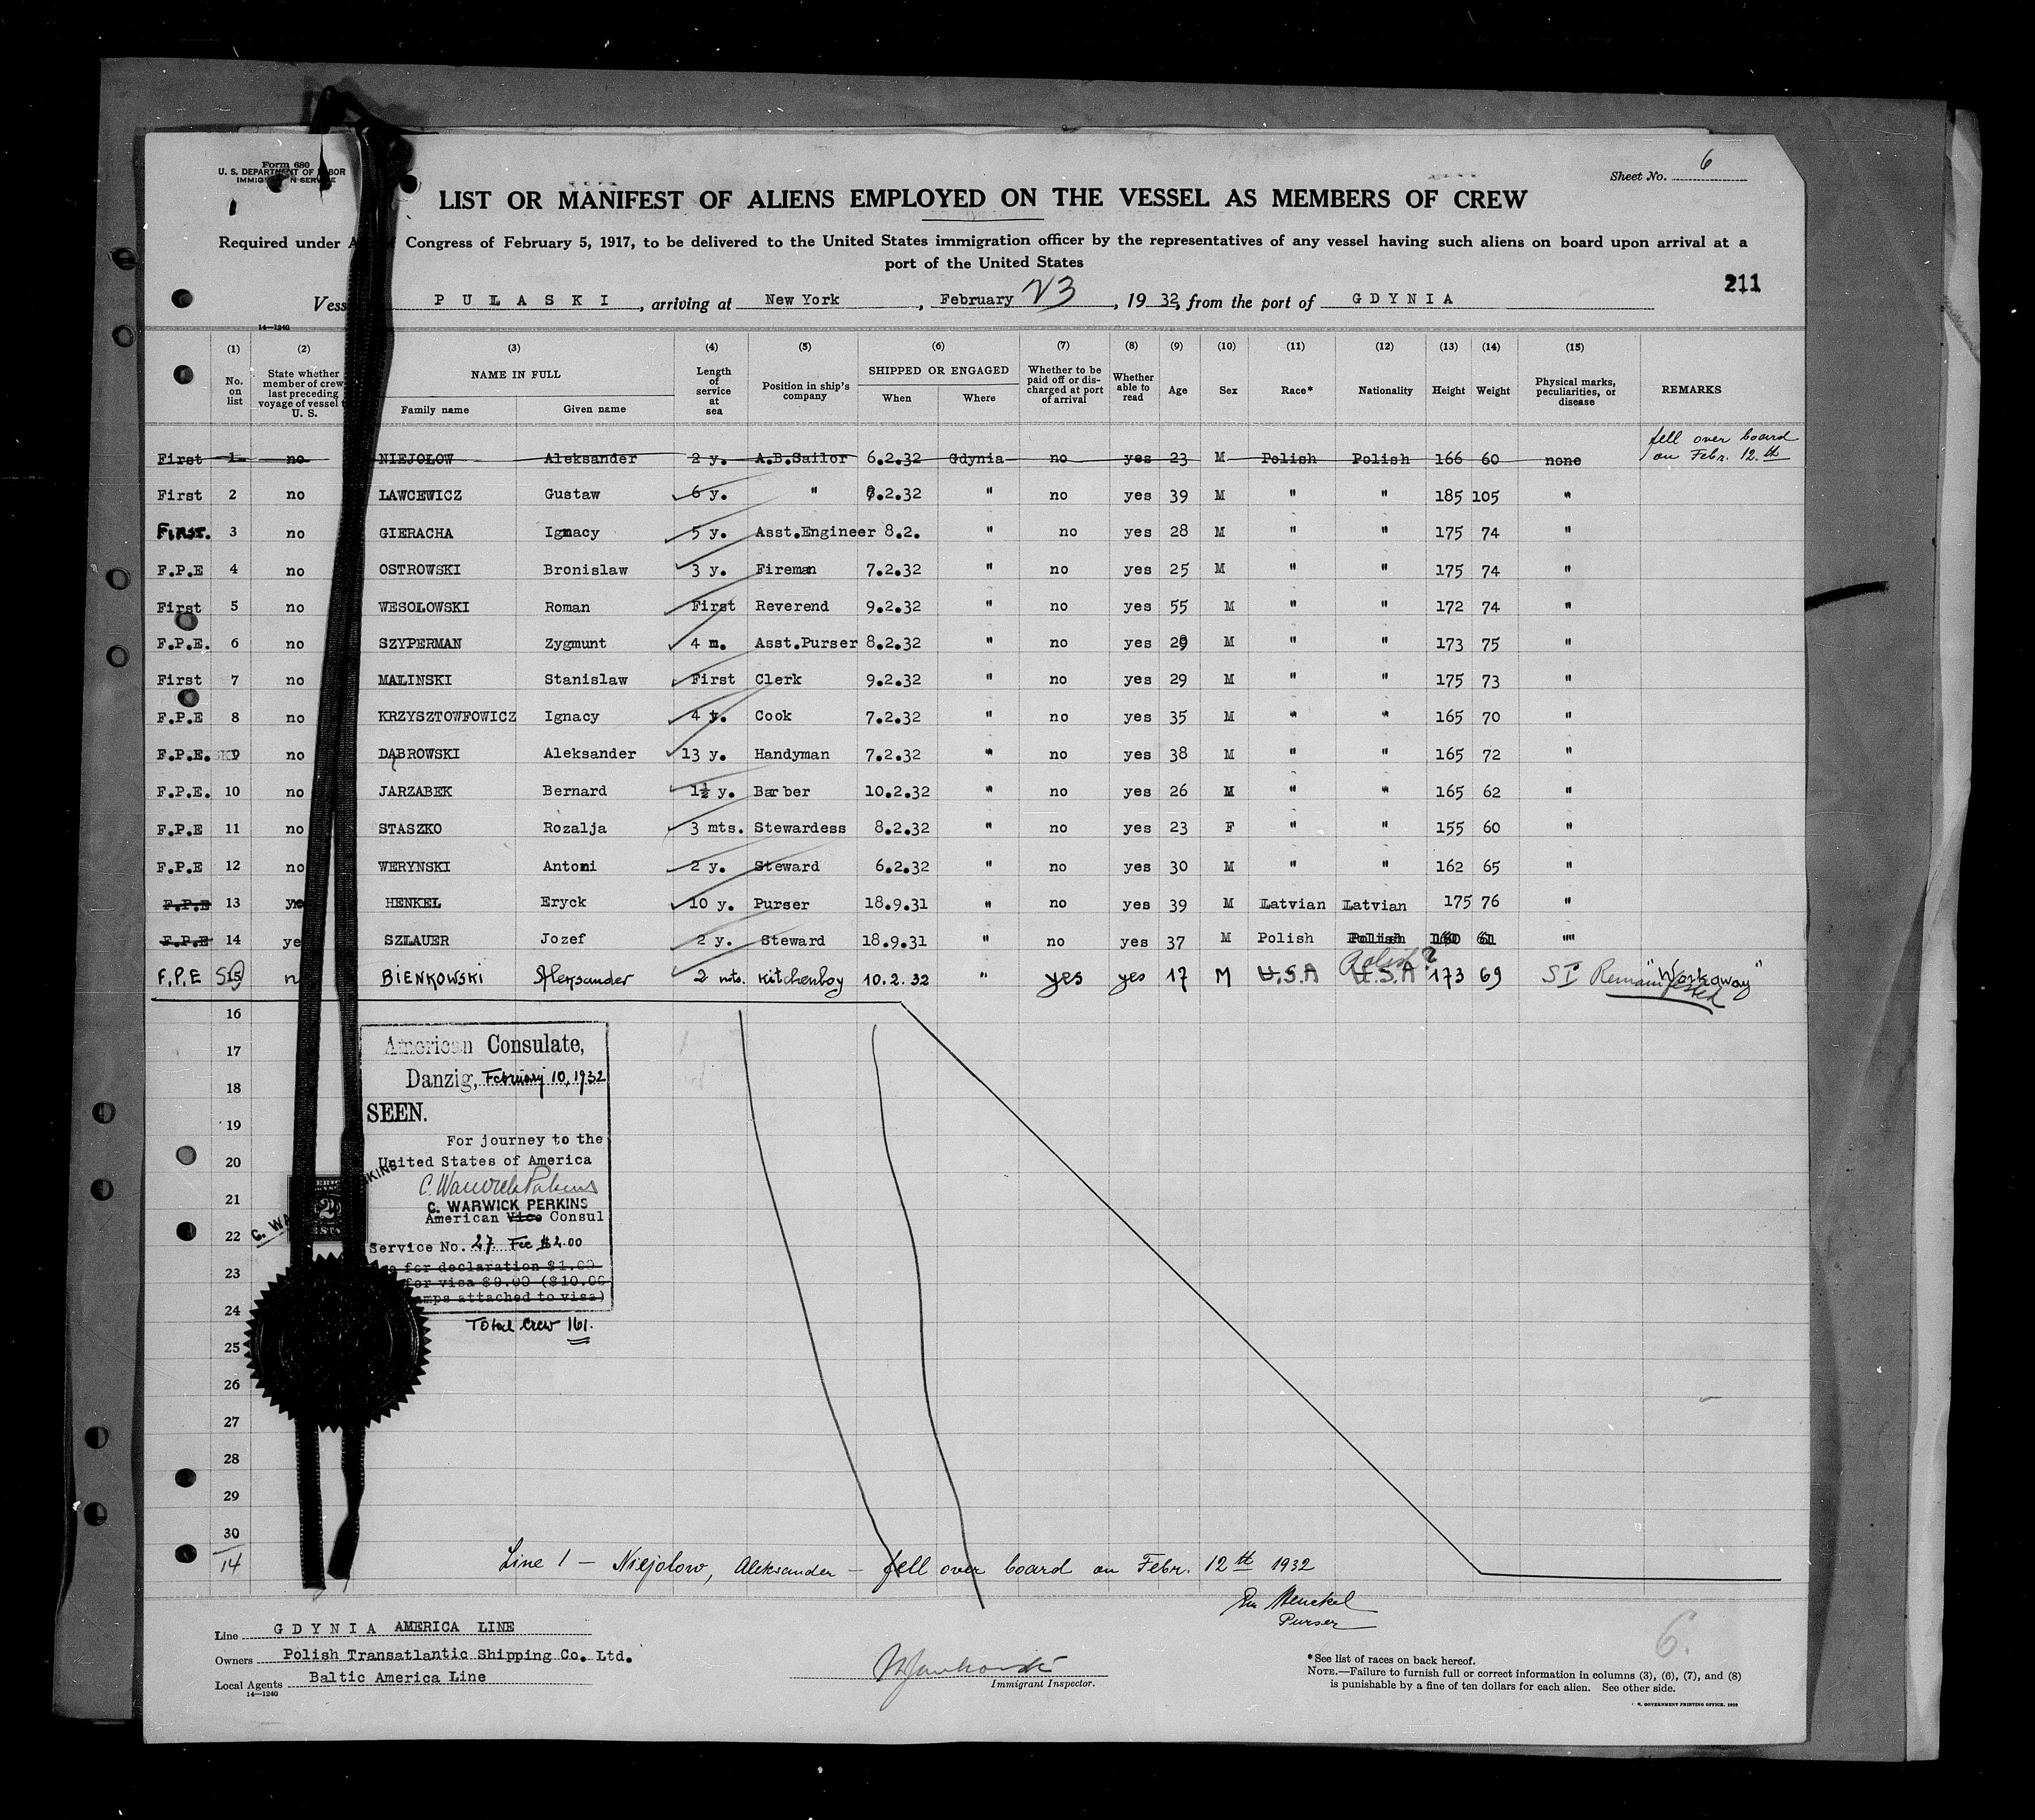 Form 680
U. S. DEPARTMENT OF LABOR
IMMIGRATION SERVICE
Sheet No. 6
LIST OR MANIFEST OF ALIENS EMPLOYED ON THE VESSEL AS MEMBERS OF CREW
Required under A of Congress of February 5, 1917, to be delivered to the United States immigration officer by the representatives of any vessel having such aliens on board upon arrival at a
port of the United States
211
Vess PULASKI, arriving at New York, February 23, 1932, from the port of GDYNIA
14—1240
(1) (2) (3) (4) (5) (6) (7) (8) (9) (10) (11) (12) (13) (14) (15)
No. on list
State whether member of crew last preceding voyage of vessel t U. S.
NAME IN FULL
Family name
Given name
Length of service at sea
Position in ship's company
SHIPPED OR ENGAGED
When
Where
Whether to be paid off or discharged at port of arrival
Whether able to read
Age
Sex
Race*
Nationality
Height
Weight
Physical marks, peculiarities, or disease
REMARKS
First 1 no NIEJOLOW Aleksander 2 y. A.B.Sailor 6.2.32 Gdynia no yes 23 M Polish Polish 166 60 none fell over board on Febr. 12.th
First 2 no LAWCEWICZ Gustaw 6 y. " .2.32 " no yes 39 M " " 185 105 "
First. 3 no GIERACHA Ignacy 5 y. Asst.Engineer 8.2. " no yes 28 M " " 175 74 "
F.P.E 4 no OSTROWSKI Bronislaw 3 y. Fireman 7.2.32 " no yes 25 M " " 175 74 "
First 5 no WESOLOWSKI Roman First Reverend 9.2.32 " no yes 55 M " " 172 74 "
F.P.E. 6 no SZYPERMAN Zygmunt 4 m. Asst.Purser 8.2.32 " no yes 29 M " " 173 75 "
First 7 no MALINSKI Stanislaw First Clerk 9.2.32 " no yes 29 M " " 175 73 "
F.P.E 8 no KRZYSZTOWFOWICZ Ignacy 4 Cook 7.2.32 " no yes 35 M " " 165 70 "
F.P.E. 9 no DĄBROWSKI Aleksander 13 y. Handyman 7.2.32 " no yes 38 M " " 165 72 "
F.P.E. 10 no JARZABEK Bernard 1½ y. Barber 10.2.32 " no yes 26 M " " 165 62 "
F.P.E 11 no STASZKO Rozalja 3 mts. Stewardess 8.2.32 " no yes 23 F " " 155 60 "
F.P.E 12 no WERYNSKI Antoni 2 y. Steward 6.2.32 " no yes 30 M " " 162 65 "
F.P.E 13 ye HENKEL Eryck 10 y. Purser 18.9.31 " no yes 39 M Latvian Latvian 175 76 "
F.P.E 14 ye SZLAUER Jozef 2 y. Steward 18.9.31 " no yes 37 M Polish Polish 160 61 ""
Polish?
F.P.E 15 n BIENKOWSKI Aleksander 2 mts. Kitchenboy 10.2.32 " yes yes 17 M U.S.A U.S.A 173 69 "Workaway"
SI Remanifested
16
17
18
19
20
21
22
23
24
25
26
27
28
29
30
14
American Consulate,
Danzig, February 10, 1932
SEEN.
For journey to the
United States of America
C. Warwick Perkins
C. WARWICK PERKINS
American Vice Consul
Service No. 27 Fee $2.00
for declaration $1.00
for visa $9.00 ($10.00
mps attached to visa)
Total Crew 161.
C. WA
KINS
2
Line 1 — Niejolow, Aleksander — fell over board on Febr. 12th 1932
Henckel
Purser
Line GDYNIA AMERICA LINE
Owners Polish Transatlantic Shipping Co. Ltd.
Local Agents Baltic America Line
14—1240
Immigrant Inspector.
6.
*See list of races on back hereof.
NOTE.—Failure to furnish full or correct information in columns (3), (6), (7), and (8)
is punishable by a fine of ten dollars for each alien. See other side.
GOVERNMENT PRINTING OFFICE